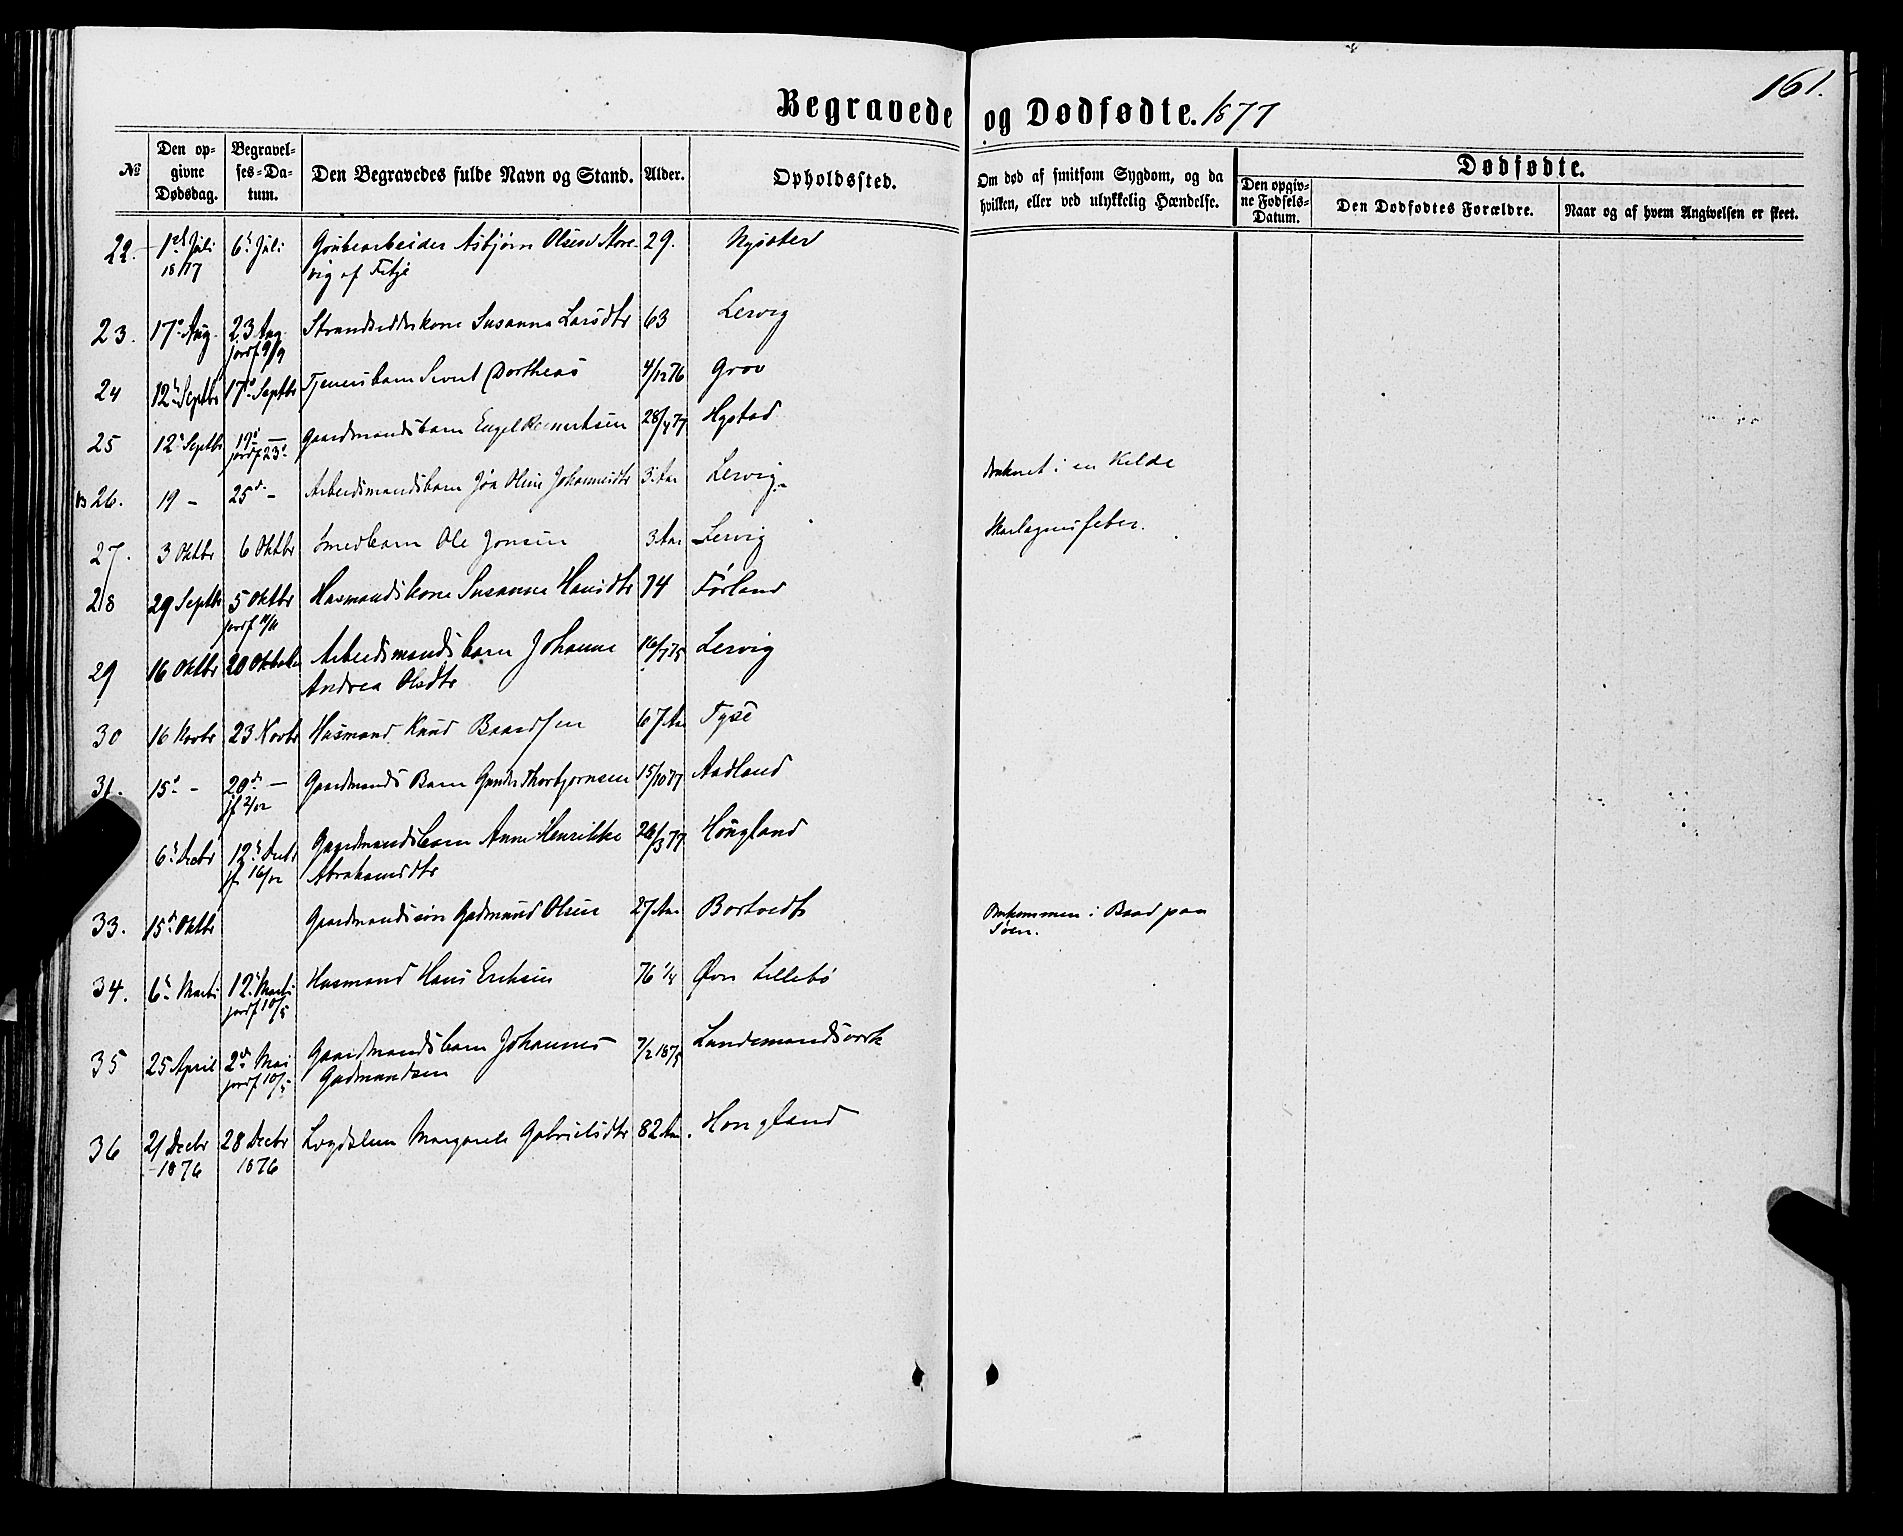 161.
Begravede og Dødfødte. 1877
№ Den opgivne Dødsdag. Begravelses-Datum. Den Begravedes fulde Navn og Stand. Alder. Opholdssted. Om død af smitsom Sygdom, og da hvilken, eller ved ulykkelig Hændelse. Dødfødte. Den opgivne Fødsels-Datum. Den Dødfødtes Forældre. Naar og af hvem Angivelsen er skeet.
22. 1ste Juli 1877 6te Juli Grubearbeider Asbjørn Olsen Store- 29.
vig af Fitje
23. 17de Aug. 23 Aug. Strandsidderkone Susanna Larsdtr 63 Lervig
jordf 9/9
24 12te Septbr 17de Septbr Tjenersbarn Dortheas 4/12 76 Grov
25 12te Septbr 19de — Gaardmandsbarn Engel 28/4 77 Hystad
jordf 23de
26. 19 - 25de - Arbeidsmandsbarn Oline Johannesdtr 3 Aar Lervig druknet i en Kilde
27. 3 Oktbr 6 Oktbr Smedbarn Ole Jonsen 3 Aar Lervig Skarlagensfeber.
28 29 Septbr 5 Oktbr Husmandskone Susanna Hansdtr 74 Førland
jordf 11/11
29 16 Oktbr 20 Oktober Arbeidsmandsbarn Johanne 16/7 75 Lervig
Andrea Olsdtr
30 16 Novbr 23 Novbr Husmand Knud Baardsen 67 Aar Tyse
31. 15de - 20de — Gaardmands Barn Gunder Thorbjørnsen 15/10 77 Aadland
jf 2/12
6te Decbr 12te Decbr Gaardmandsbarn Anne Henrikke 26/3 77 Høugland
jf 16/12 Abrahamsdtr
33. 15de Oktbr Gaardmandssøn Gudmund Olsen 27 Aar Bortvedt Omkommen i Baad paa
Søen.
34. 6te Marts 12te Marts Husmand Hans Eriksen 76 1/4 Øvre Lillebø
jordf 10/5
35 25 April 2den Mai Gaardmandsbarn Johannes 7/2 1875 Landsmandsverk
jordf 10/5 Gudmundsen
36 21 Decbr 28 Decbr Margrete Gabrielsdtr 82 Aar. Hougland
1876 1876